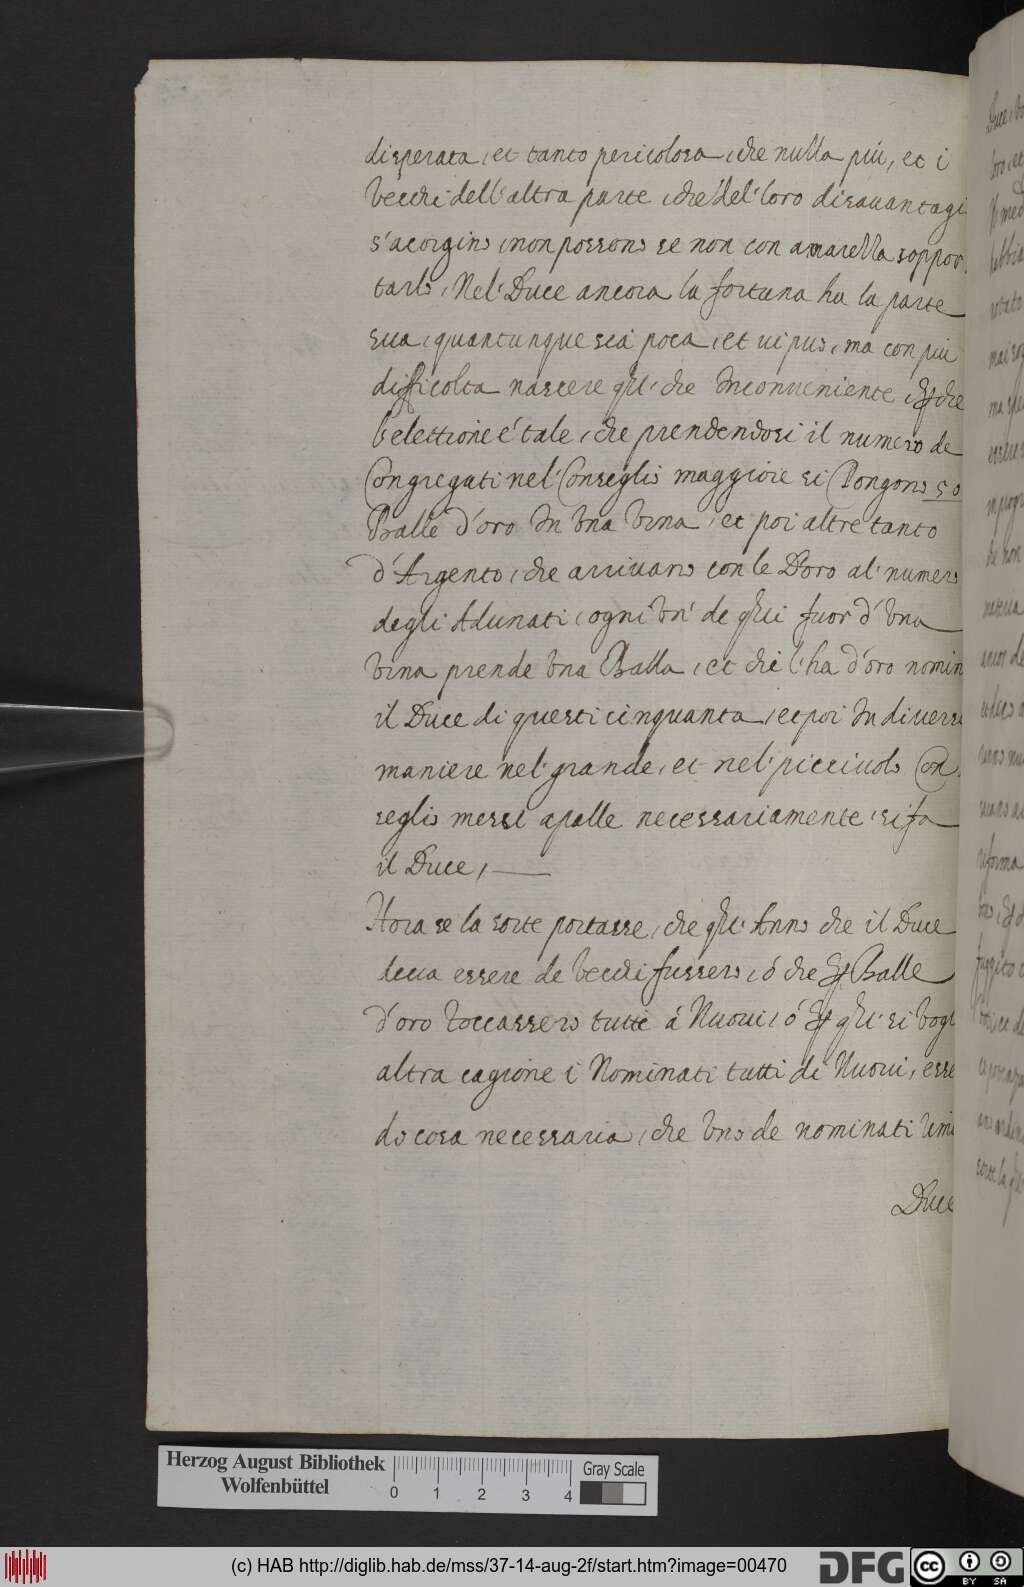 disperata, et tanto pericolosa, che nulla più, et i
Vecchi dell'altra parte, che del' loro disauantagi
s'acorgino, non possono se non con amarella soppor
tarlo, Nel' Duce ancora la fortuna ha la parte
sua, quantunque sia poca, et
ma con più
difficolta nascere qll' che Inconueniente,
che
l'elettione é tale, che prendendosi il numero de
Congregati nel' Conseglio maggiore si Pongono 50
Balle d'oro In Vna Vrna, et poi altre tanto
d'Argento, che arriuano con le D'oro al' numero
degli Adunati, ogni Vn' de qlli fuor d'Vna
Vrna prende Vna Balla, et chi l'ha d'oro nomin
il Duce di questi cinquanta, et poi In diuerse
maniere nel' grande, et nel' picciuolo Con
seglio messi apalle necessariamente, si fa
il Duce,
Hora se la sorte portasse, che qll' Anno che il Duce
deua essere de Vecchi fussero, ó che
Balle
d'oro toccassero tutte á Nuoui, ó
qll' si Vogl
altra cagione i Nominati tutti di Nuoui, esse
do cosa necessaria, che Vno de nominati
Duce
Herzog August Bibliothek
Wolfenbüttel
0 1 2 3 4
Gray Scale
(c) HAB http://diglib.hab.de/mss/37-14-aug-2f/start.htm?image=00470
DFG
cc BY SA